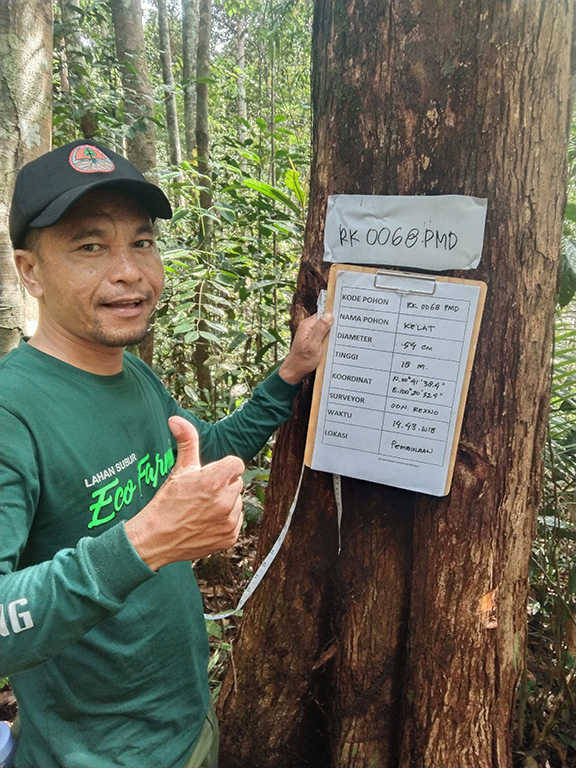 RK 0068 PMD
KODE POHON RK 0068 PMD
NAMA POHON KELAT
DIAMETER 54 cm
TINGGI 18 M.
KOORDINAT N.00°41'38.4" E.100°20'52.4"
SURVEYOR DON. REXNO
WAKTU 14.43.WIB
LOKASI PEMBINAAN
LAHAN SUBUR
Eco Farm
NG